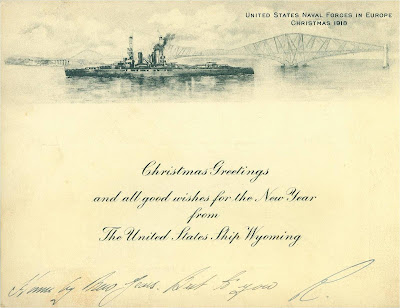 UNITED STATES NAVAL FORCES IN EUROPE
CHRISTMAS 1918
Christmas Greetings
and all good wishes for the New Year
from
The United States Ship Wyoming
Home by New Years. But